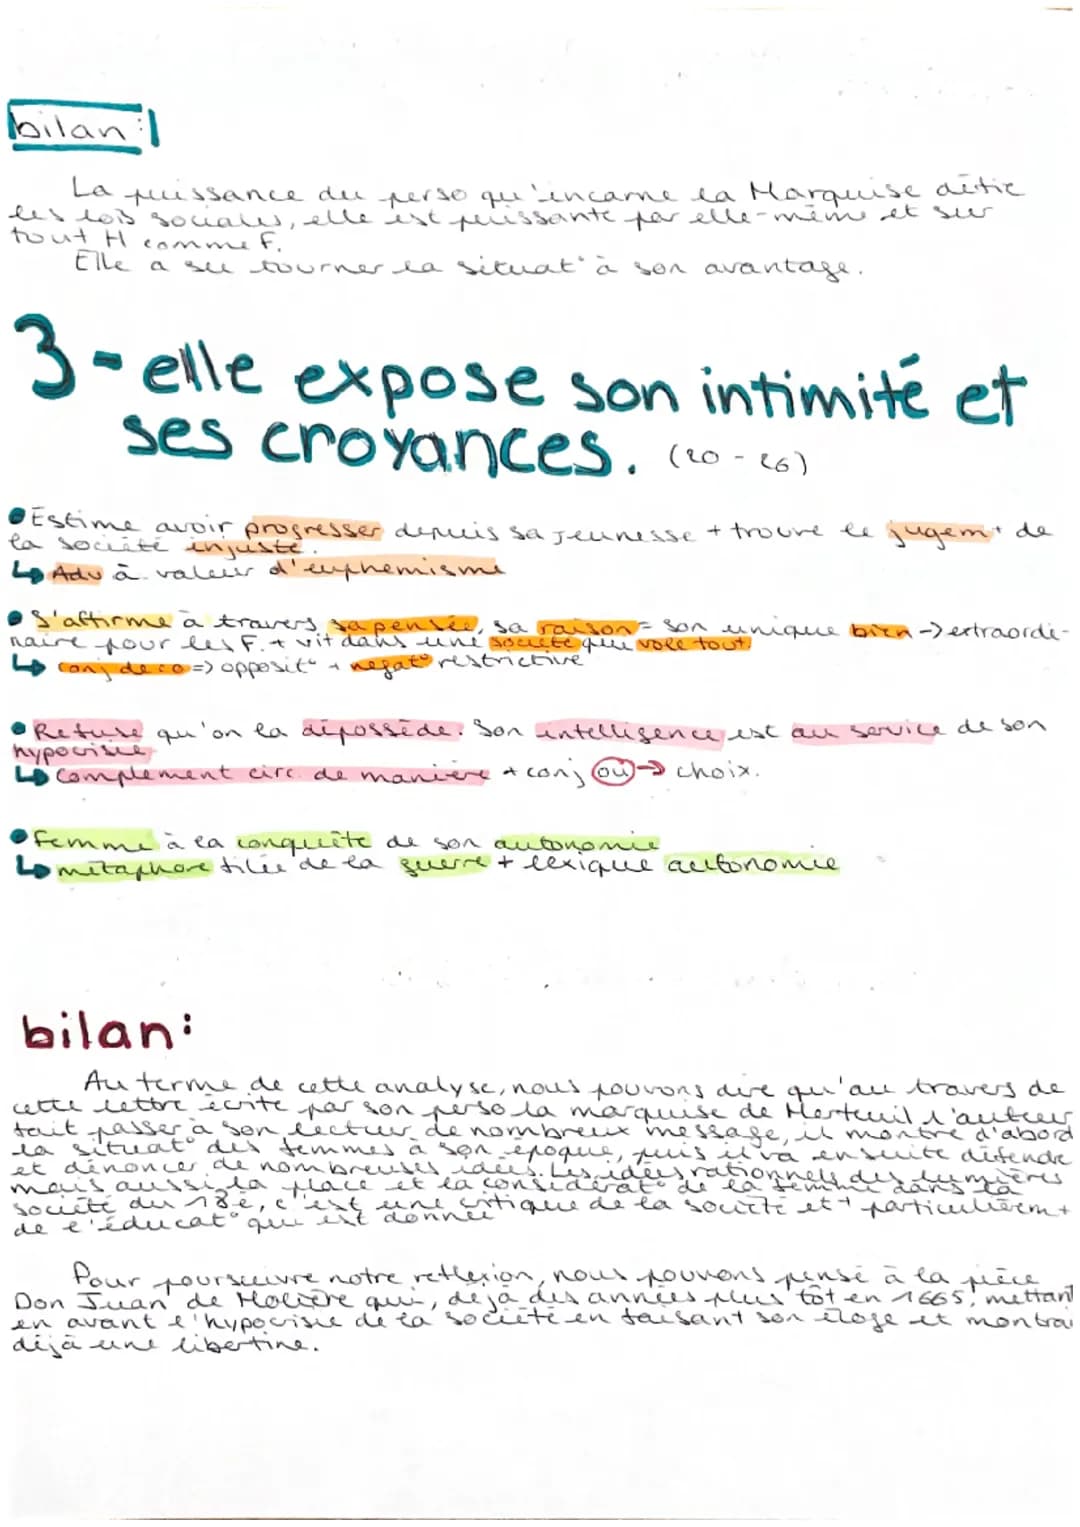 bilan :
La puissance du perso qu'incarne la Marquise défie
les lois sociales, elle est puissante par elle-même et sur
tout H comme F.
Elle a su tourner la situat° à son avantage.
3 - elle expose son intimité et
ses croyances. (20 - 26)
• Estime avoir progresser depuis sa jeunesse + trouve le jugemt de
la société injuste.
↳ Adv à valeur d'euphemisme
• S'affirme à travers sa pensée, sa raison = son unique bien → extraordi-
naire pour les F. + vit dans une société qui vole tout.
↳ conj de co => opposit° + negat° restrictive
• Refuse qu'on la dépossède. Son intelligence est au service de son
hypocrisie
↳ Complement circ. de manière + conj ou → choix.
• Femme à la conquête de son autonomie
↳ métaphore filée de la guerre + lexique autonomie
bilan :
Au terme de cette analyse, nous pouvons dire qu'au travers de
cette lettre écrite par son perso la marquise de Merteuil l'auteur
fait passer à son lecteur de nombreux message, il montre d'abord
la situat° des femmes à son époque, puis il va ensuite défendre
et dénoncer de nombreuses idées. Les idées rationnels des lumières
mais aussi la place et la considérat° de la femme dans la
société du 18e, c'est une critique de la société et + particulièremt
de l'éducat° qui est donnée
Pour poursuivre notre reflexion, nous pouvons pensé à la pièce
Don Juan de Molière qui, déjà des années plus tôt en 1665, mettant
en avant l'hypocrisie de la société en faisant son éloge et montrai
déjà une libertine.